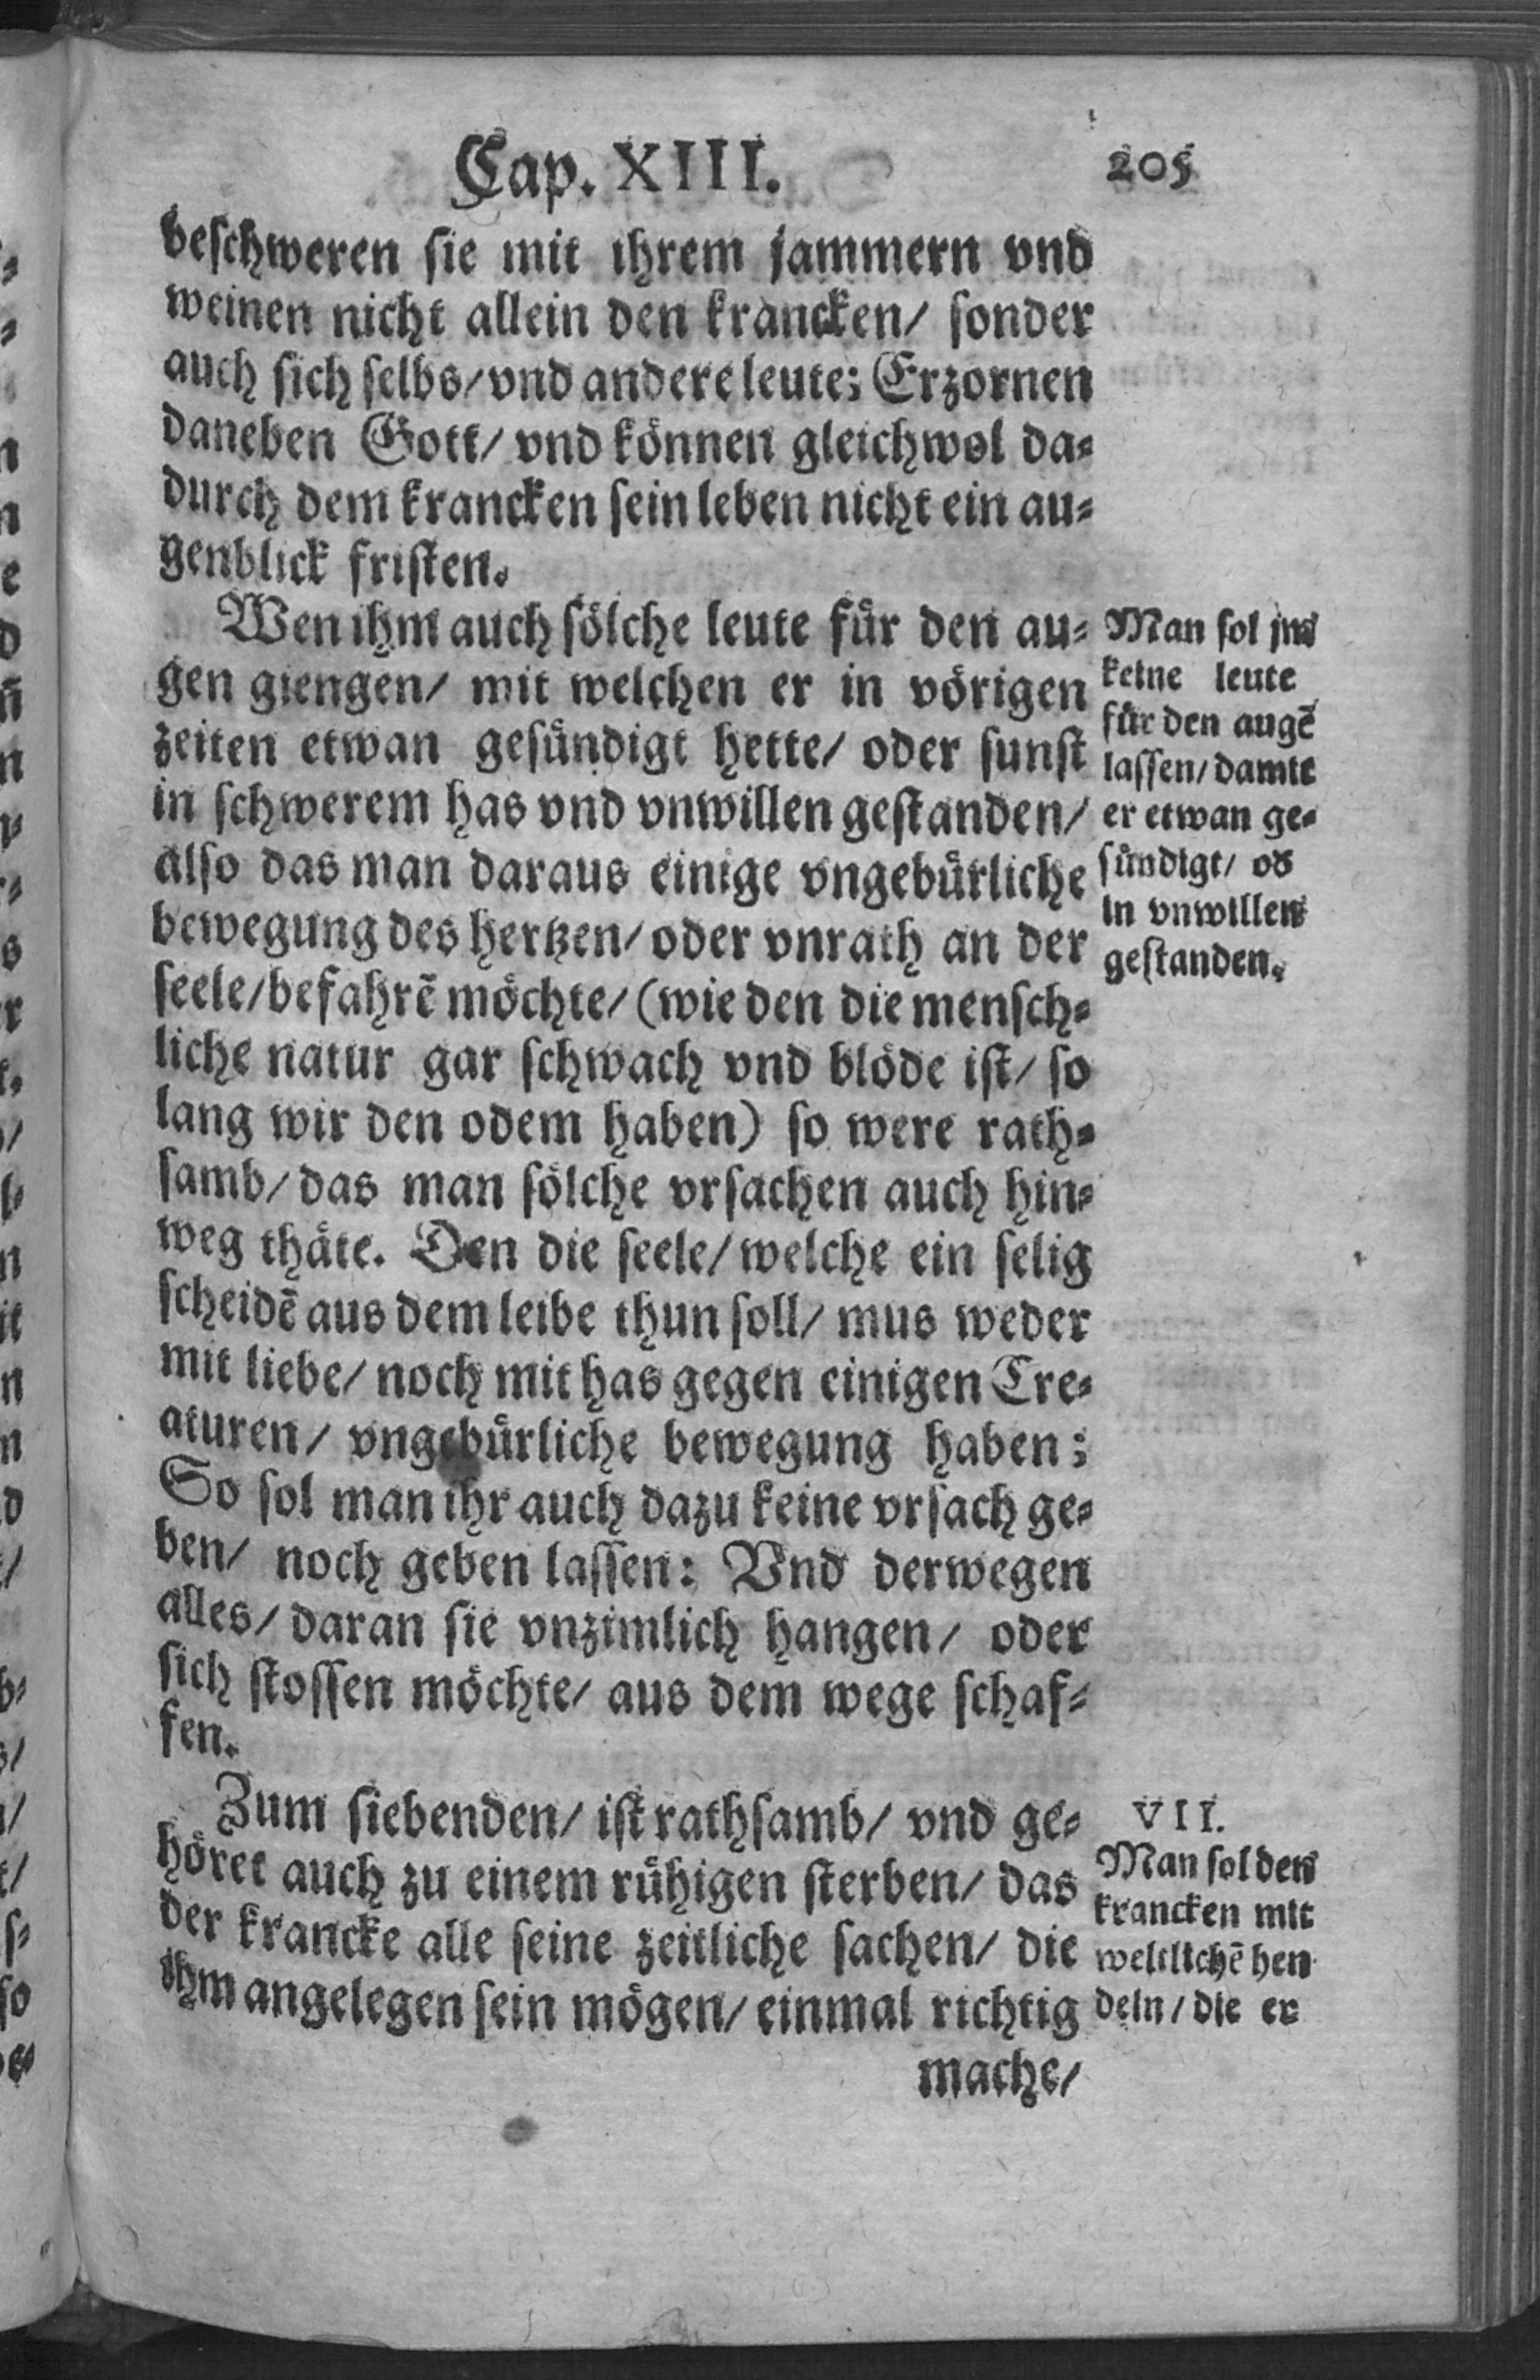 Cap. XIII.
205
beschweren sie mit ihrem jammern vnd
weinen nicht allein den krancken/ sonder
auch sich selbs/ vnd andere leute: Erzornen
daneben Gott/ vnd können gleichwol da-
durch dem krancken sein leben nicht ein au-
genblick fristen.
Wen ihm auch sölche leute für den au-
gen giengen/ mit welchen er in vörigen
zeiten etwan gesündigt hette/ oder sunst
in schwerem has vnd vnwillen gestanden/
also das man daraus einige vngebürliche
bewegung des hertzen/ oder vnrath an der
seele/ befahrē möchte/ (wie den die mensch-
liche natur gar schwach vnd blöde ist/ so
lang wir den odem haben) so were rath-
samb/ das man sölche vrsachen auch hin-
weg thäte. Den die seele/ welche ein selig
scheidē aus dem leibe thun soll/ mus weder
mit liebe/ noch mit has gegen einigen Cre-
aturen/ vngebürliche bewegung haben:
So sol man ihr auch dazu keine vrsach ge-
ben/ noch geben lassen: Vnd derwegen
alles/ daran sie vnzimlich hangen/ oder
sich stossen möchte/ aus dem wege schaf-
fen.
Zum siebenden/ ist rathsamb/ vnd ge-
höret auch zu einem rühigen sterben/ das
der krancke alle seine zeitliche sachen/ die
ihm angelegen sein mögen/ einmal richtig
mache/
Man sol jm
keine leute
für den augē
lassen/ damit
er etwan ge-
sündigt/ od
in vnwillen
gestanden.
VII.
Man sol den
krancken mit
weltlichē hen
deln/ die er